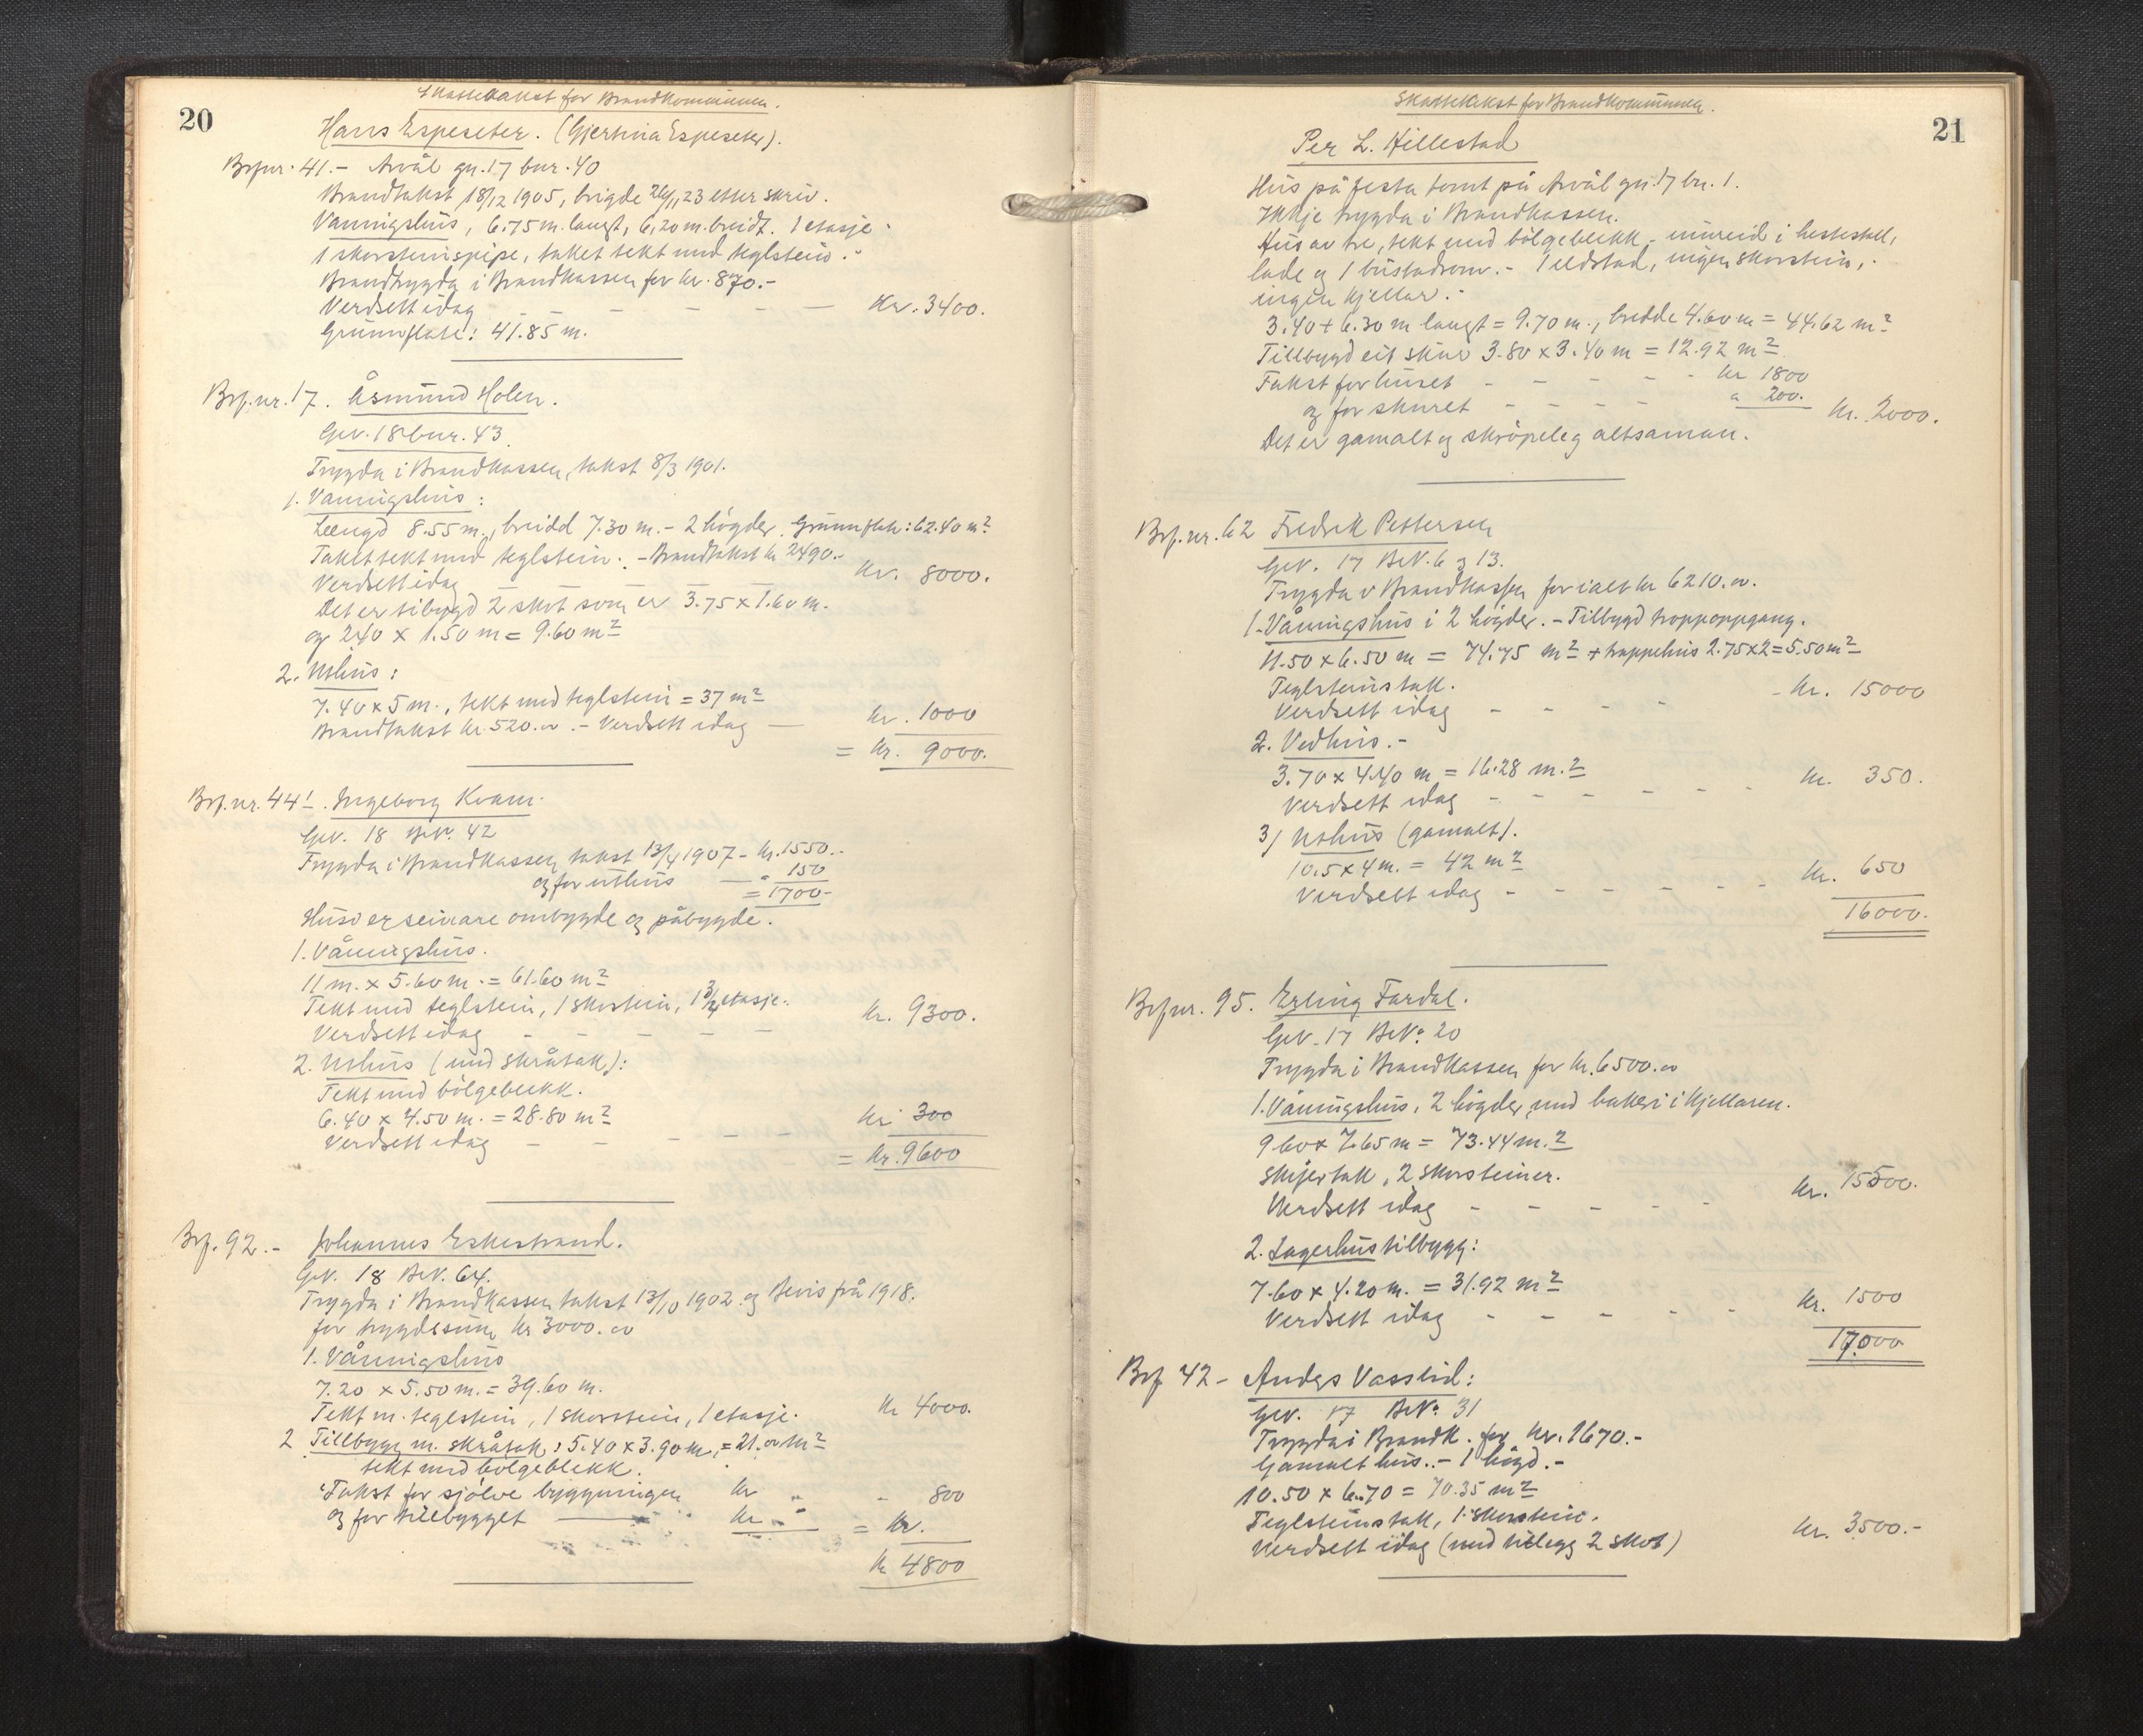 20
Skattetakst for Brandkommunen.
Hans Espeseter. (Gjertina Espeseter).
Brf.nr. 41.- Årvål gn. 17 bnr. 40
Brandtakst 18/12 1905, brigde 26/11 23 etter skriv.
Vanningshus, 6.75 m. langt, 6.20 m. breidt. 1 etasje.
1 skorsteinspipe, taket tekt med teglstein.-
Brandtrygda i Brandkassen for kr. 870.-
Verdsett idag - - - - - Kr. 3400.
Grunnflate: 41.85 m.
Brf.nr. 17. Åsmund Holen.
Gnr. 18 bnr. 43.
Trygda i Brandkassen, takst 8/3 1901.
1. Vanningshus:
Lengd 8.55 m., breidd 7.30 m. - 2 högder. Grunnflate: 62.40 m2
Taket tekt med teglstein. - Brandtakst kr 2490.-
Verdsett idag - - - - Kr. 8000.
Det er tilbygd 2 skot som er 3.75 x 1.60 m.
og 2.40 x 1.50 m = 9.60 m2
2. Uthus:
7.40 x 5 m., tekt med teglstein = 37 m2
Brandtakst kr. 520.00.- Verdsett idag — Kr. 1000
= Kr. 9000.
Brf.nr. 44! Ingeborg Kvam.
Gnr. 18 Bnr. 42
Trygda i Brandkassen takst 13/4 1907 - Kr. 1550.-
og for uthus — " 150
= 1700-
Huso er seinare ombygde og påbygde.
1. Våningshus.
11 m. x 5.60 m. = 61.60 m2
Tekt med teglstein, 1 skorstein, 1 3/4 etasje.
Verdsett idag - - - - Kr. 9300.
2. Uthus (med skråtak):
Tekt med bölgeblekk.
6.40 x 4.50 m. = 28.80 m2
Verdsett idag - - - - - Kr 300
= Kr. 9600
Brf. 92.- Johannes Eskestrand.
Gnr. 18 Bnr. 64.
Trygda i Brandkassen takst 13/10 1902. og Bevis frå 1918.
for trygdesum kr 3000.00
1. Vånningshus
7.20 x 5.50 m. = 39.60 m.
Tekt m. teglstein, 1 skorstein, 1 etasje. Kr 4000.
2 Tillbygg m. skråtak: 5.40 x 3.90 m. = 21.00 m2
tekt med bölgeblekk.
Takst for sjölve byggningen Kr " - 800
og for tillbygget — Kr " = Kr.
Kr 4800
21
Skattetakst for Brandkommunen.
Per L. Hillestad
Hus på festa tomt på Årvål gn. 17 bn. 1.
Ikkje trygda i Brandkassen.
Hus av tre, tekt med bölgeblekk - innreid i hestestall,
lade og 1 bustadrom.- 1 eldstad, ingen skorstein,
ingen kjellar.-
3.40 + 6.30 m langt = 9.70 m., bredde 4.60 m = 44.62 m2
Tillbygd eit skur 3.80 x 3.40 m = 12.92 m2
Takst for huset - - - - - kr 1800
og for skuret - - - - " 200. Kr. 2000.
Det er gamalt og skröpeleg altsaman.
Brf.nr. 62 Fredrik Pettersen
Gnr. 17 BrN. 6 og 13.
Trygda v Brandkassen for ialt kr 6210.00.
1. Våningshus i 2 högder. - Tilbygd troppoppgang.
11.50 x 6.50 m = 74.75 m2 + trappehus 2.75x2 = 5.50 m2
Teglsteinstak.
Verdsett idag - - - - - Kr. 15000
2. Vedhus.-
3.70 x 4.40 m = 16.28 m.2
Verdsett idag - - - - - - Kr. 350.
3) Uthus (gamalt).
10.5 x 4 m. = 42 m2
Verdsett idag - - - - - - Kr. 650
16000.
Brf.nr. 95. Erling Fardal.
Gnr. 17 BrNo 20
Trygda i Brandkassen for kr. 6500.00
1. Våningshus, 2 högder, med bakeri i kjellaren.
9.60 x 7.65 m = 73.44 m.2
Skifertak, 2 skorsteiner.
Verdsett idag - - - - - Kr. 15500.
2. Lagerhus tilbygg:
7.60 x 4.20 m. = 31.92 m2
Verdsett idag - - - - - Kr. 1500
17000
Brf 42 - Anders Vasslid:
Gnr. 17 BrNo 31
Trygda i Brandk. for Kr. 1670.-
Gamalt hus.- 1 högd.-
10.50 x 6.70 = 70.35 m2
Teglsteinstak, 1 skorstein.
Verdsett idag (med tillegg 2 skot) Kr. 3500.-